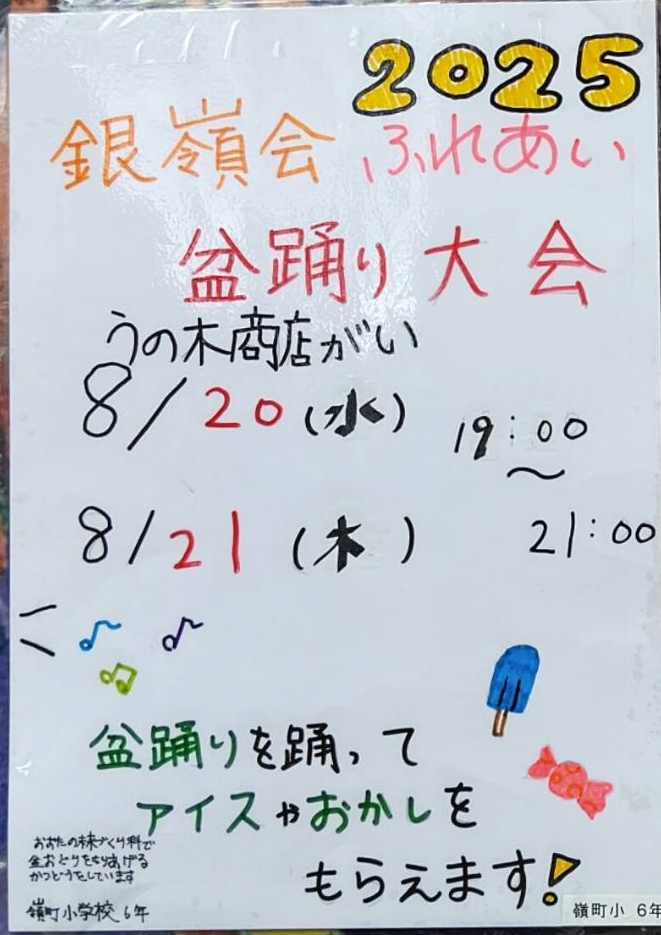 2025
銀嶺会 ふれあい
盆踊り大会
うの木商店がい
8/20(水)
19:00
〜
8/21(木)
21:00
盆踊りを踊って
アイスやおかしを
もらえます!
おおたの未来づくり科で
盆おどりをもりあげる
かつどうをしています
嶺町小学校 6年
嶺町小 6年